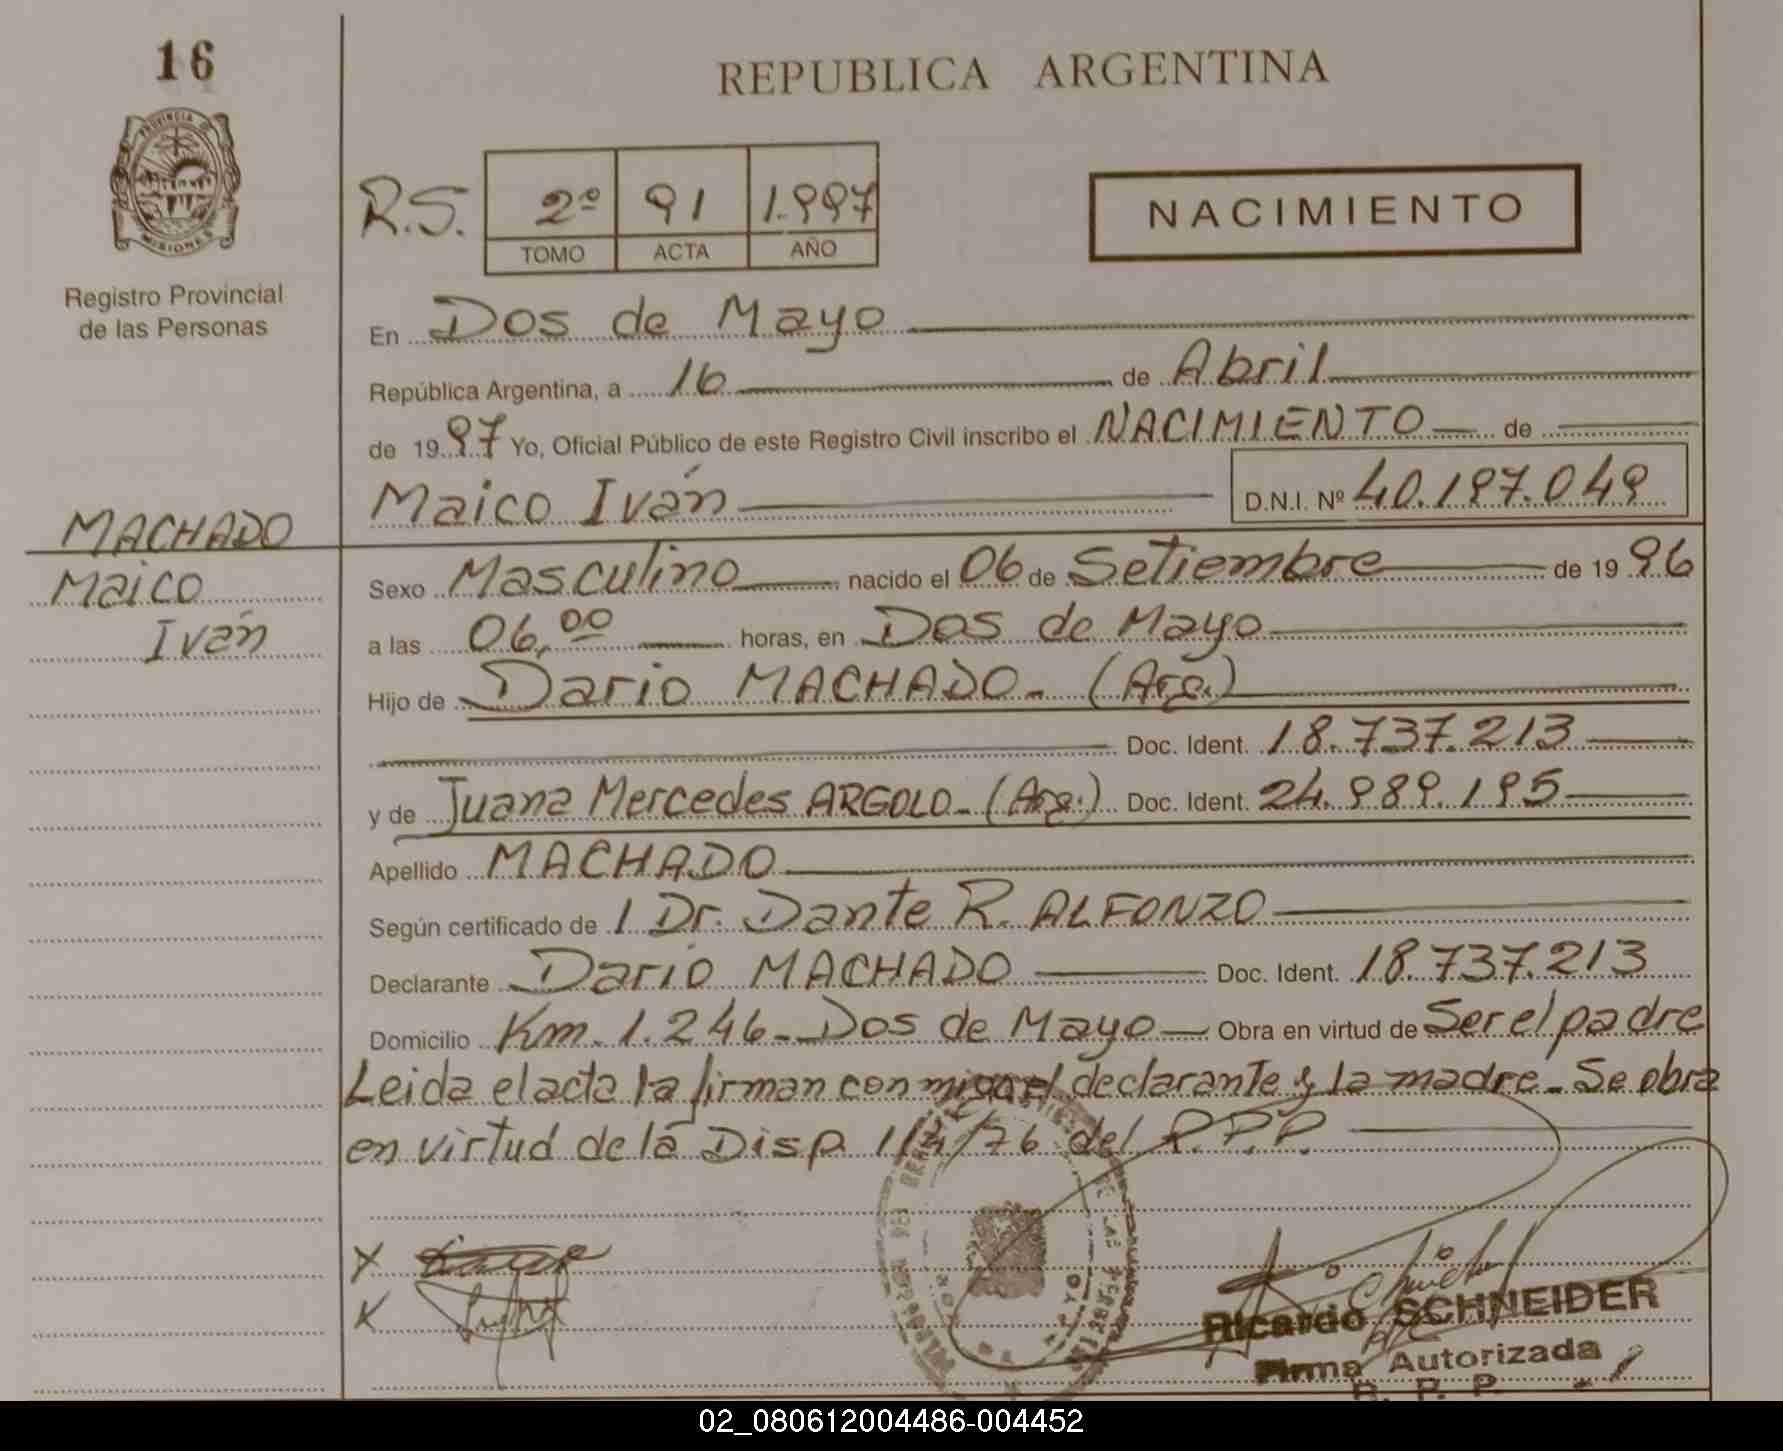 16
REPUBLICA ARGENTINA
PROVINCIA DE
MISIONES
Registro Provincial
de las Personas
R.S. 2º 91 1.997
TOMO ACTA AÑO
NACIMIENTO
En Dos de Mayo
República Argentina, a 16 de Abril
de 1997 Yo, Oficial Público de este Registro Civil inscribo el NACIMIENTO de
Maico Iván D.N.I. Nº 40.197.049
MACHADO
Maico
Iván
Sexo Masculino nacido el 06 de Setiembre de 1996
a las 06,00 horas, en Dos de Mayo
Hijo de Dario MACHADO- (Arg.)
Doc. Ident. 18.737.213
y de Juana Mercedes ARGOLO- (Arg.) Doc. Ident. 24.989.195
Apellido MACHADO
Según certificado de 1 Dr. Dante R. ALFONZO
Declarante Dario MACHADO Doc. Ident. 18.737.213
Domicilio Km. 1.246-Dos de Mayo Obra en virtud de Ser el padre
Leida el acta la firman con migo el declarante y la madre- Se obra
en virtud de la Disp. 114/76 del R.P.P.
X
X
Ricardo SCHNEIDER
Firma Autorizada
R. P. P.
02_080612004486-004452